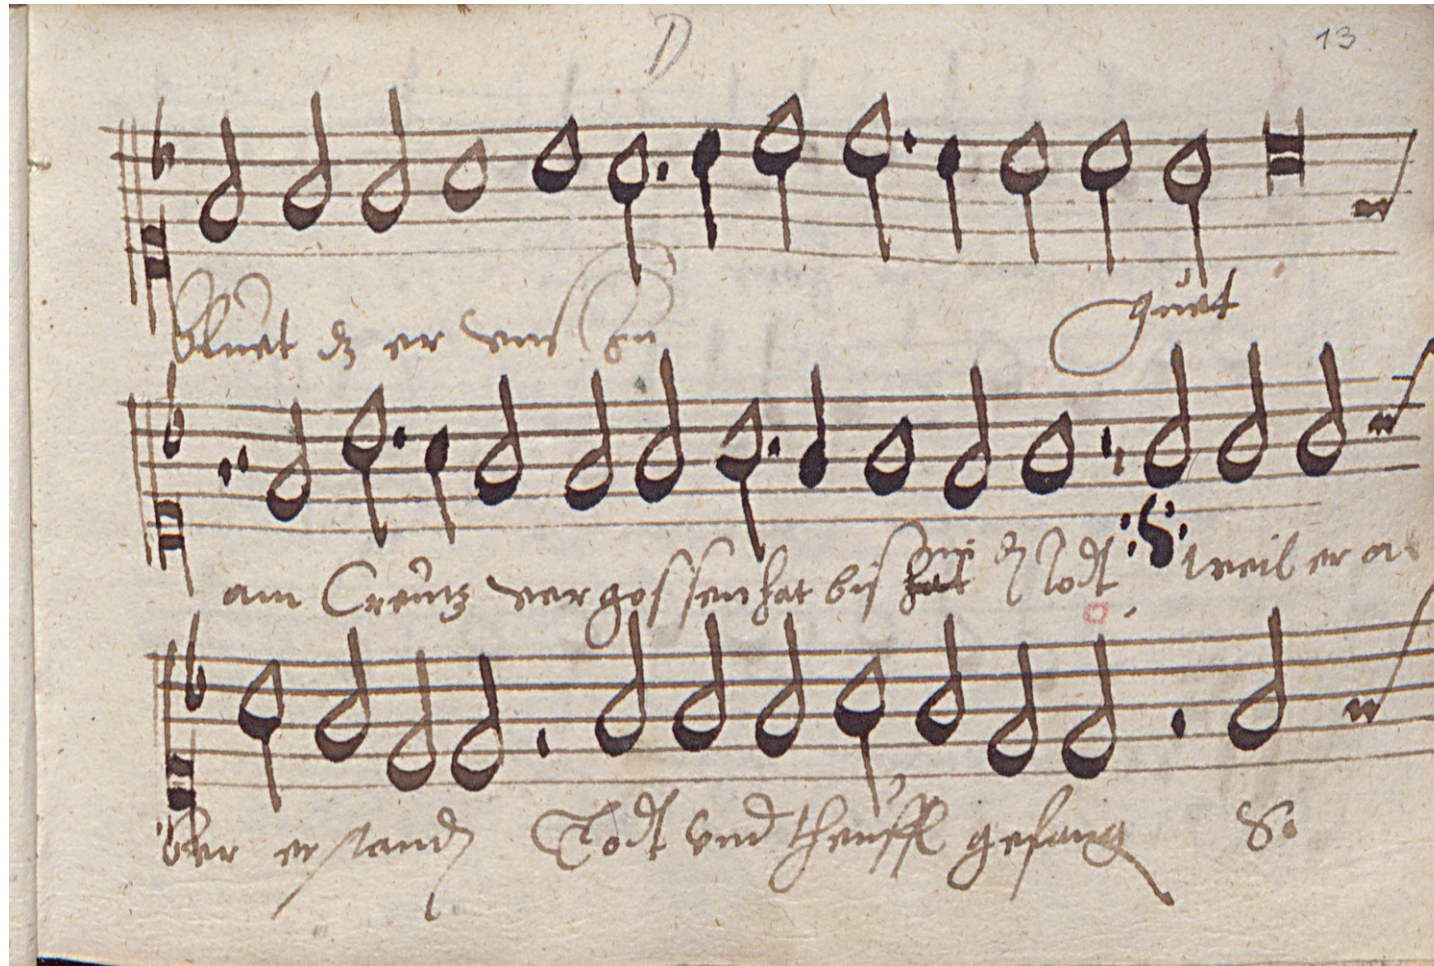 D
13
Bluet dz er uns zu guet
am Creutz vergossen hat bis in den Todt weil er a
über erstanden Todt und theuffl gefang So